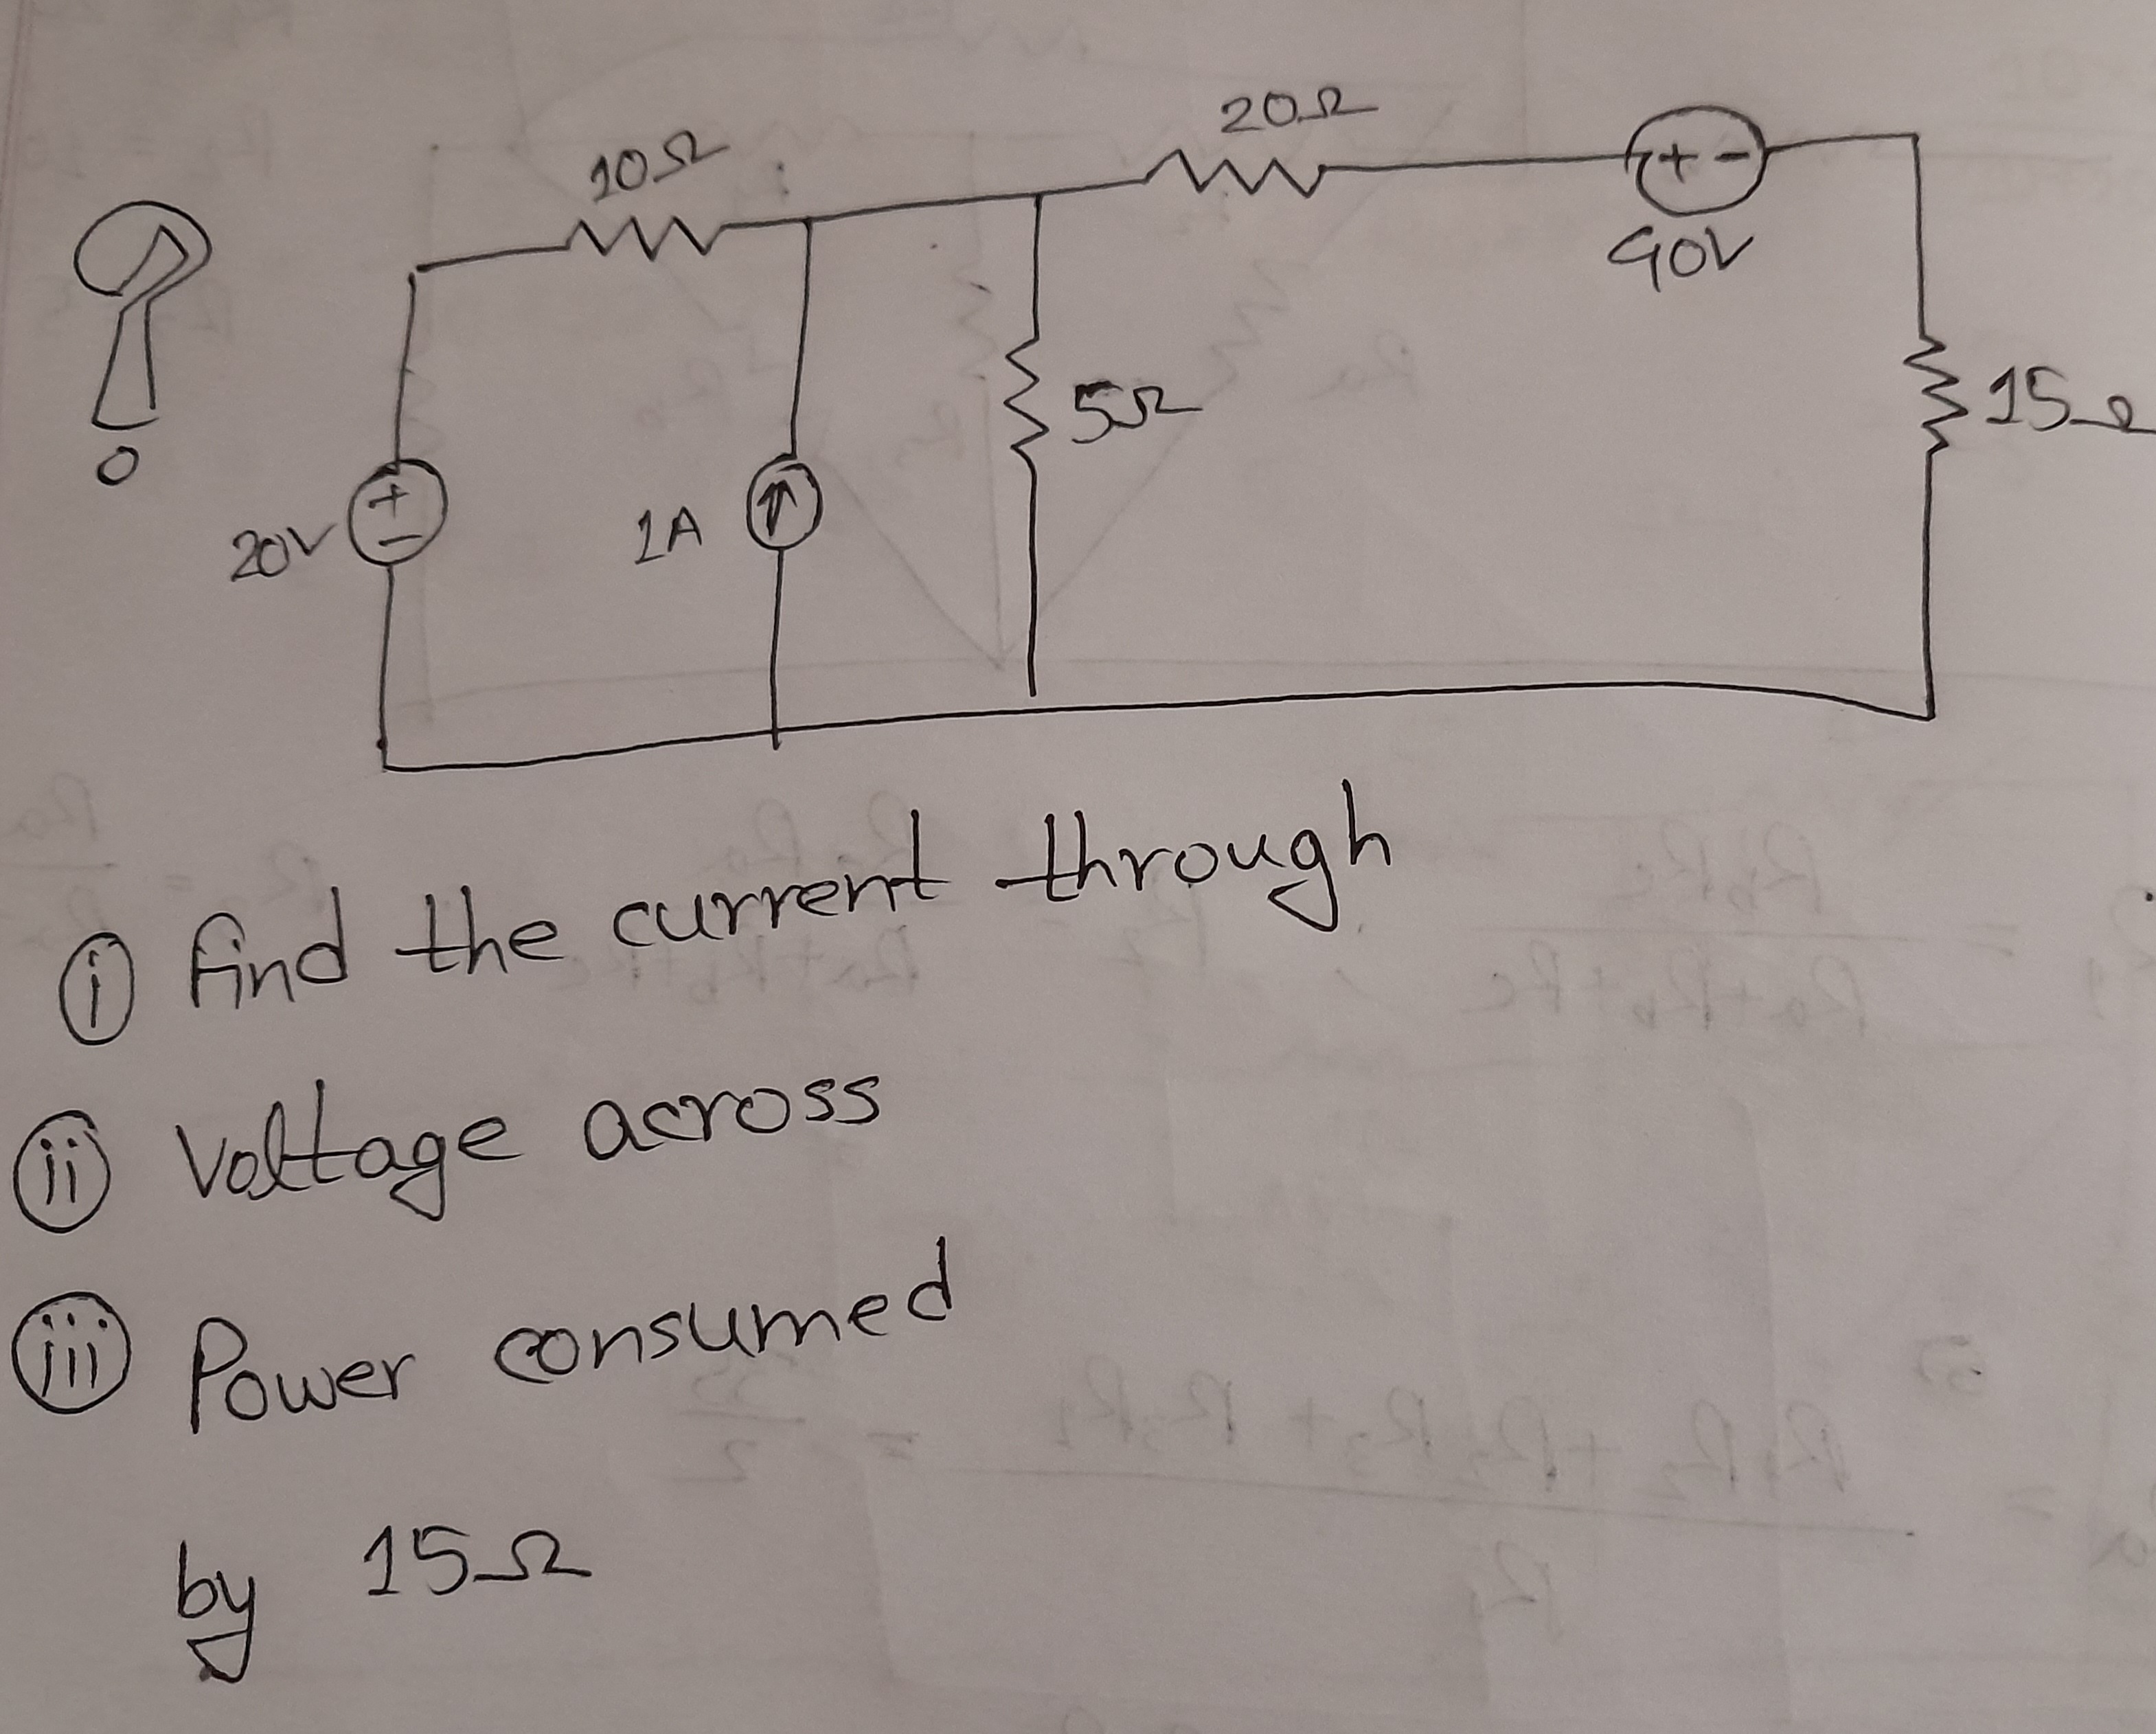 10Ω
20Ω
+ -
90V
5Ω
15Ω
+
-
20V
1A
i find the current through
ii Voltage across
iii Power consumed
by 15Ω